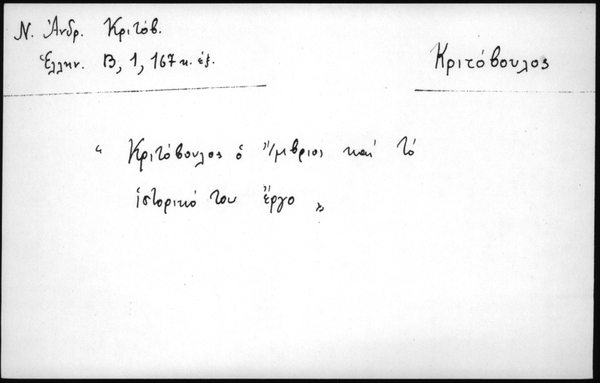 Ν. Ἀνδρ. Κριτόβ.
Ἑλλην. Β, 1, 167 κ. ἑξ.
Κριτόβουλος
« Κριτόβουλος ὁ Ἴμβριος καί τό
ἱστορικό του ἔργο »